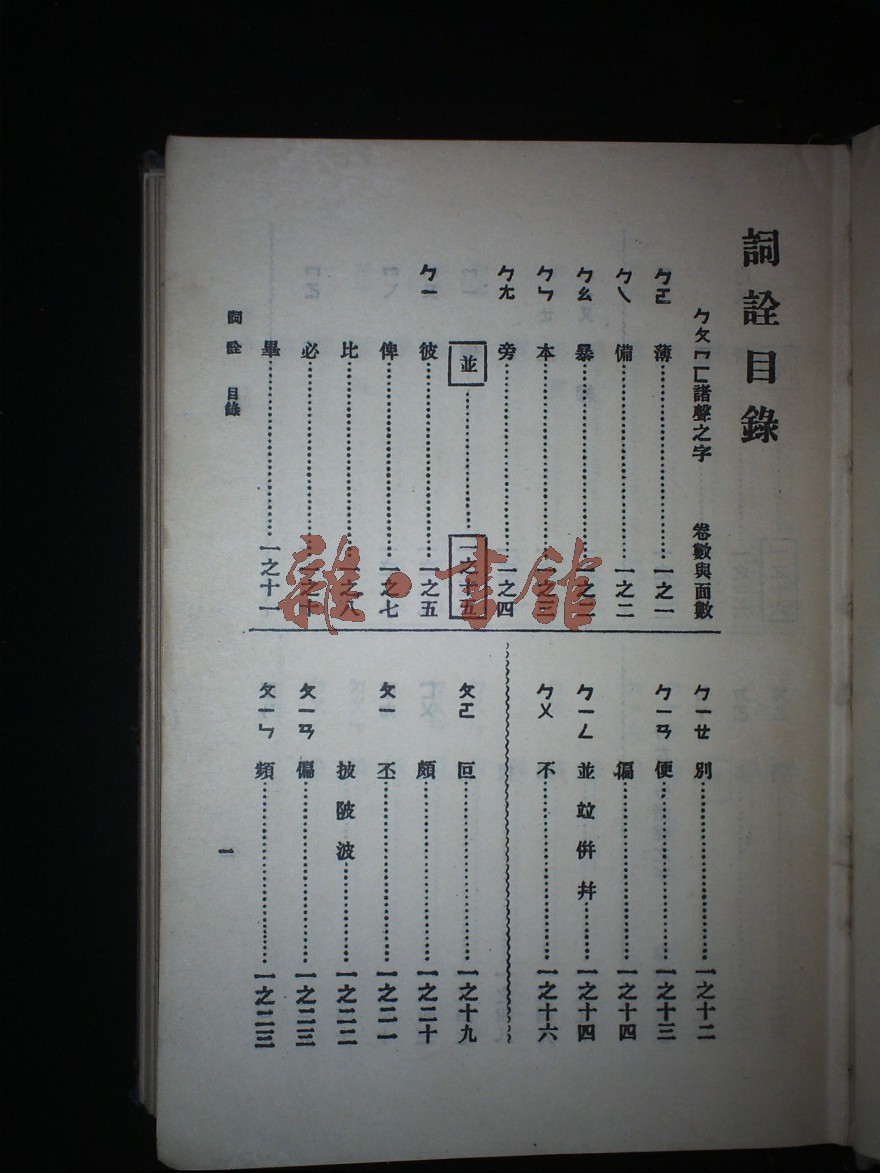 詞詮目錄
ㄅㄆㄇㄈ諸聲之字 卷數與面數
ㄅㄛ 薄 一之一
ㄅㄟ 備 一之二
ㄅㄠ 暴 一之二
ㄅㄣ 本 一之三
ㄅㄤ 旁 一之四
並 一之十五
ㄅㄧ 彼 一之五
俾 一之七
比 一之八
必 一之十
畢 一之十一
ㄅㄧㄝ 別 一之十二
ㄅㄧㄢ 便 一之十三
徧 一之十四
ㄅㄧㄥ 並 竝 併 并 一之十四
ㄅㄨ 不 一之十六
ㄆㄛ 叵 一之十九
頗 一之二十
ㄆㄧ 丕 一之二一
披 陂 波 一之二二
ㄆㄧㄢ 偏 一之二三
ㄆㄧㄣ 頻 一之二三
詞詮 目錄
一
雜·書館